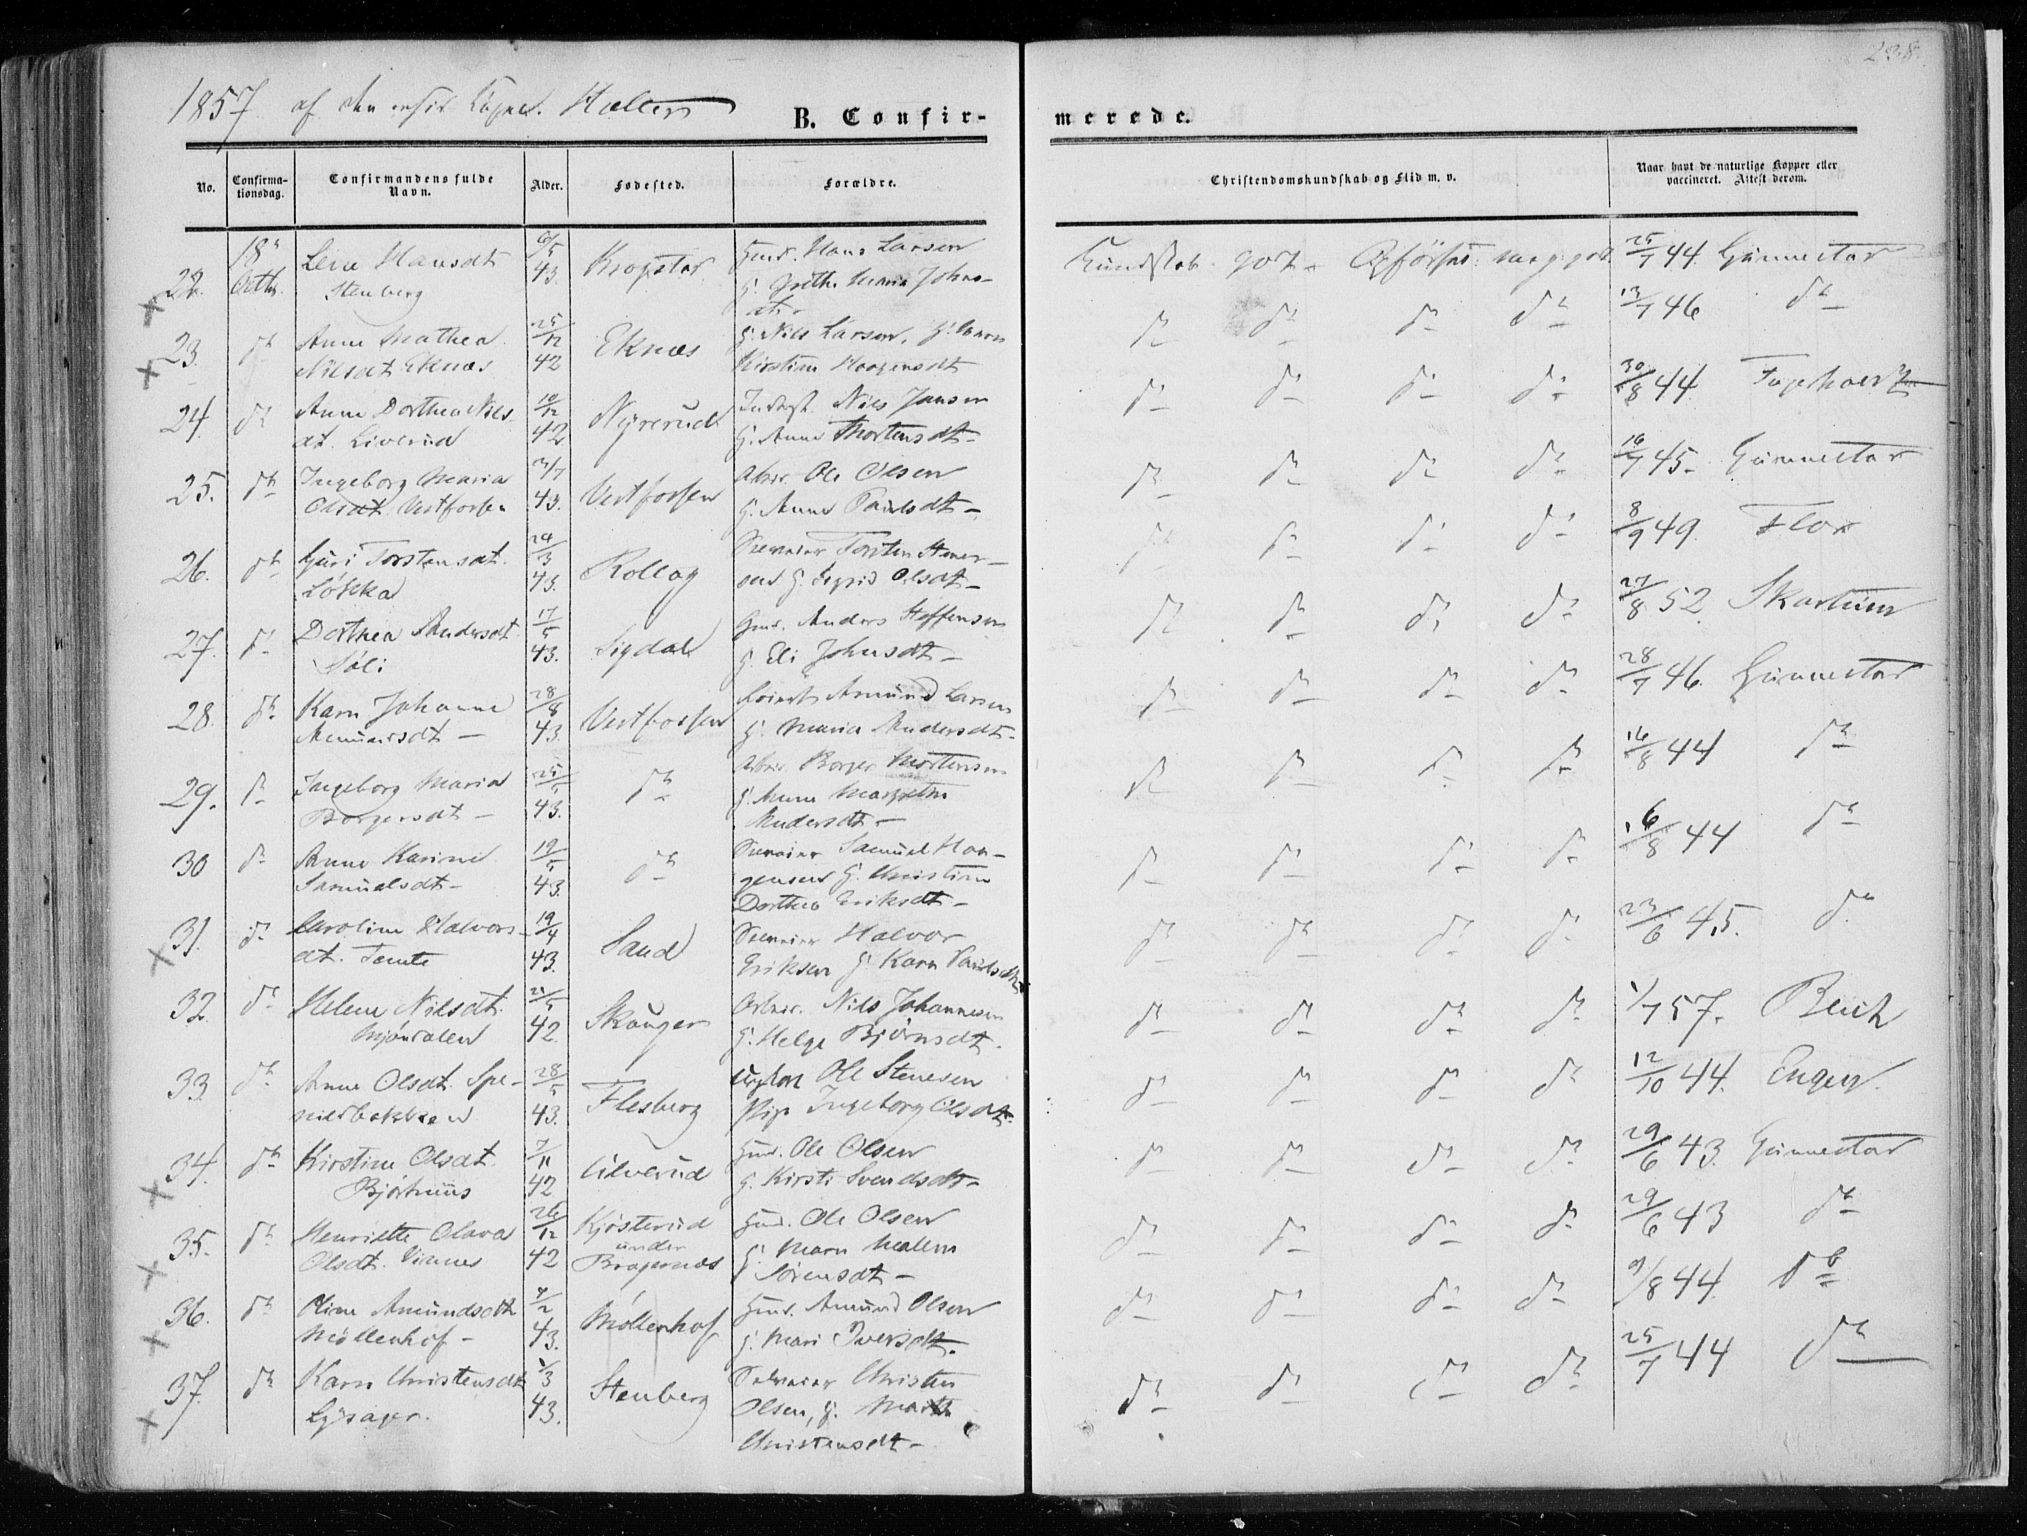 238.
1857 af
B. Confirmerede.
No. Confirmationsdag. Confirmandens fulde Navn. Alder. Fødested. Forældre. Christendomskundskab og Flid m. v. Naar havt de naturlige Kopper eller vaccineret. Attest derom.
22. 18 Octbr. Lene Hansdt 6/5 43. Krogstad Hans Larsen Kundskab god 25/7 44 Gunnestad
Stenberg Maria Johns-
dtr
23. do Anne Mathea 25/12 42 Eknæs G. Nils Larsen, do do do do 13/7 46 do
Nilsdt Eknæs Kirstine Haagensdt
24. do Anne Dorthea Nils- 10/12 42 Nils Jansen do do do do 30/8 44
dt. Liverud G. Anne Mortensdt
25. do Ingeborg Maria 43. Vestfossen Arbm. Ole Olsen do do do do 16/7 45. Gunnestad
Olsdt Vestfossen G. Anne Paulsdt
26. do Guri Torstensdt. 24/3 43. Rollag Torsten do do do do 8/9 49. Flor
Løkka G. Sigrid Olsdt
27. do Dorthea Andersdt 17/5 43. Sigdal Gmd. Anders Steffensen do do do do 27/8 52. Skartum
Søli G. Eli Johnsdt
28. do Karn Johanne 28/8 43. Vestfossen Amund Larsen do do do do 28/7 46. Gunnestad
Amundsdt G. Maria Andersdt
29. do Ingeborg Maria 25/5 43. do Arbm. Borger Mortensen do do do do 16/8 44 do
Borgersdt G. Anne Margrethe
Andersdt
30 do Anne Karine 19/5 43. do Samuel Haa- do do do do 16/8 44 do
Samuelsdt gensen G. Christine
Dorthea Eriksdt
31. do Caroline Halvors- 19/4 43. Sand Halvor do do do do 23/6 45. do
dt. Tomte Eriksen G. Karn Paulsdt
32. do Helene Nilsdt. 42. Skouger Arbm. Nils Johannesen do do do do 1/7 57. Reich
Mjøndalen G. Helge Bjørnsdt.
33. do Anne Olsdt. 28/5 43. Flesberg Ungkarl Ole Stenesen do do do do 12/10 44. Enger.
Pige Ingeborg Olsdt.
34. do Kirstine Olsdt. 7/11 42 Ulverud Gmd. Ole Olsen do do do do 29/6 43. Gunnestad
Bjørhuus G. Kirsti Svendsdt
35. do Henriette Olava 26/12 42 Kjøsterud under Bragernæs Gmd. Ole Olsen do do do do 29/6 43 do
Olsdt. G. Maren Malene
Sørensdt
36. do Oline Amundsdt 43. Møllenhof Gmd. Amund Olsen do do do do 9/8 44. do
Møllenhof G. Mari Iversdt.
37. do Karn Christensdt 43. Stenberg Christen do do do do 25/7 44 do
Lysager. Olsen, G.
Christensdt